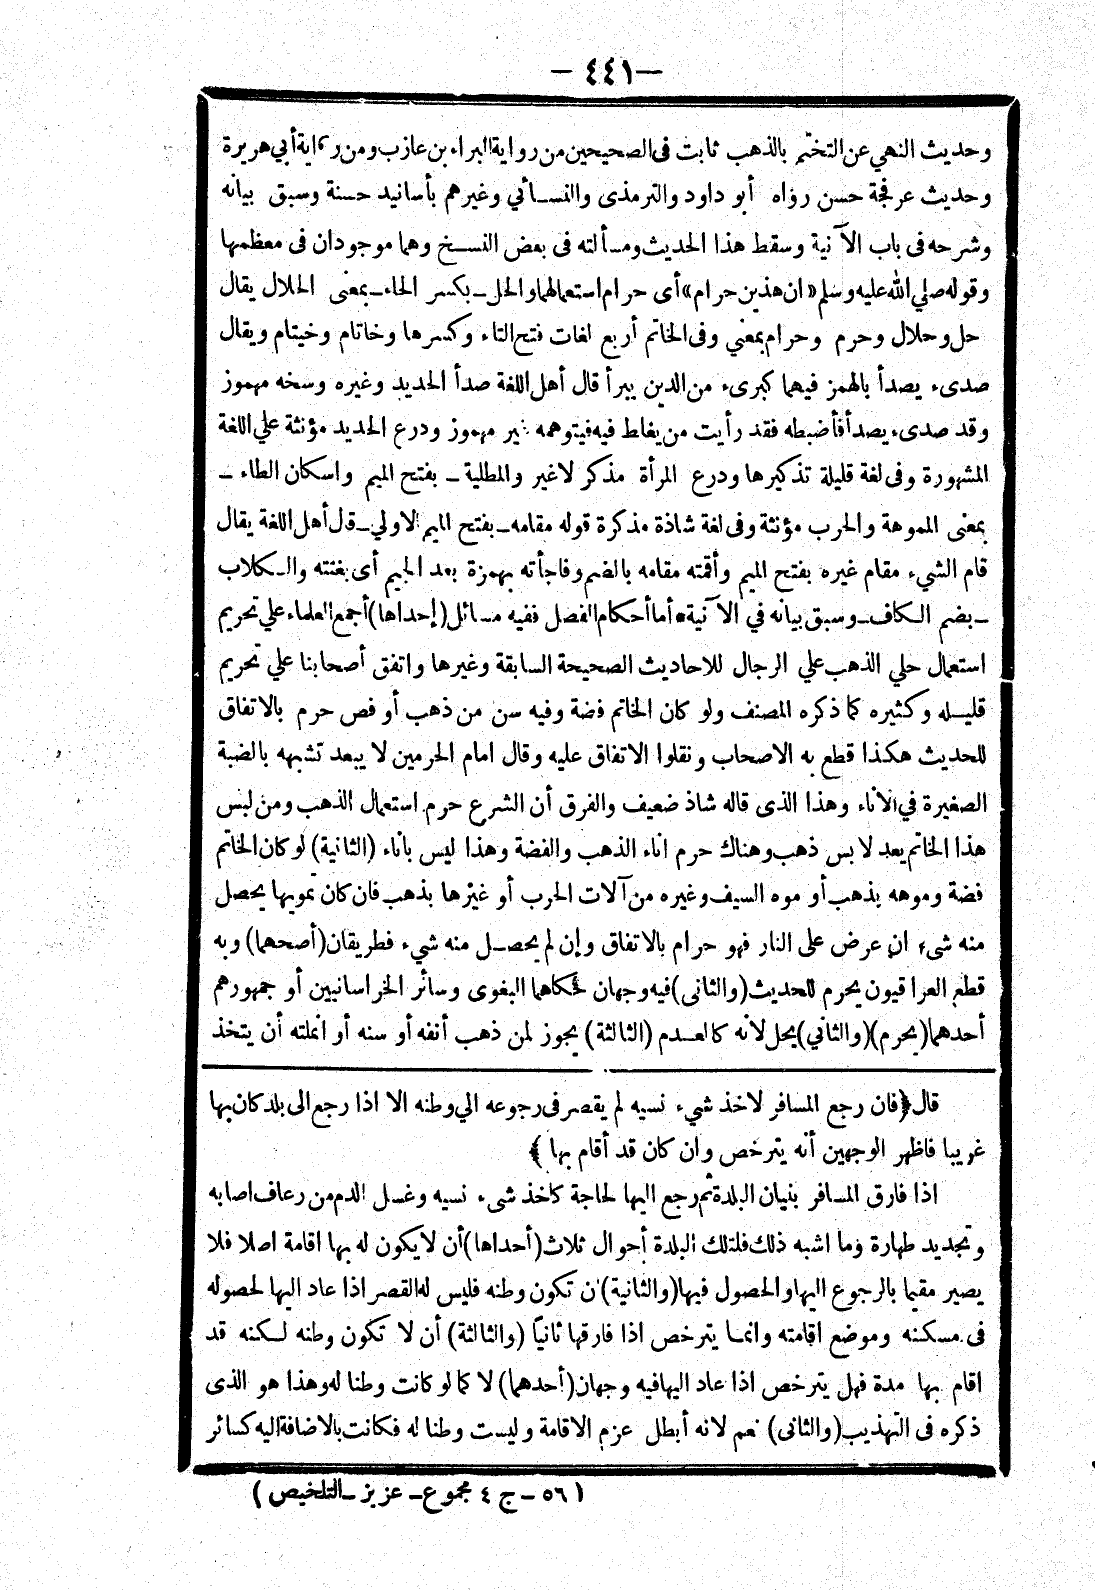 — ٤٤١ —
وحديث النهي عن التختم بالذهب ثابت فى الصحيحين من رواية البراء بن عازب ومن رواية أبي هريرة
وحديث عرفجة حسن رواه أبو داود والترمذى والنسائي وغيرهم بأسانيد حسنة وسبق بيانه
وشرحه فى باب الآنية وسقط هذا الحديث ومسألته فى بعض النسخ وهما موجودان فى معظمها
وقوله صلي الله عليه وسلم «ان هذين حرام» أى حرام استعمالهما والحل ــ بكسر الحاء ــ بمعنى الحلال يقال
حل وحلال وحرم وحرام بمعني وفى الخاتم أربع لغات فتح التاء وكسرها وخاتام وخيتام ويقال
صدىء يصدأ بالهمز فيهما كبرىء من الدين يبرأ قال أهل اللغة صدأ الحديد وغيره وسخه مهموز
وقد صدىء يصدأ فأضبطه فقد رأيت من يغلط فيه فيتوهمه غير مهموز ودرع الحديد مؤنثة علي اللغة
المشهورة وفى لغة قليلة تذكيرها ودرع المرأة مذكر لاغير والمطلية ــ بفتح الميم واسكان الطاء ــ
بمعنى المموهة والحرب مؤنثة وفى لغة شاذة مذكرة قوله مقامه ــ بفتح الميم الاولي ــ قال أهل اللغة يقال
قام الشيء مقام غيره بفتح الميم وأقمته مقامه بالضم وفاجأته بهمزة بعد الجيم أى بغتته والكلاب
ــ بضم الكاف ــ وسبق بيانه في الآنية * أما أحكام الفصل ففيه مسائل (إحداها) أجمع العلماء علي تحريم
استعمال حلي الذهب علي الرجال للاحاديث الصحيحة السابقة وغيرها واتفق أصحابنا علي تحريم
قليله وكثيره كما ذكره المصنف ولو كان الخاتم فضة وفيه سن من ذهب أو فص حرم بالاتفاق
للحديث هكذا قطع به الاصحاب ونقلوا الاتفاق عليه وقال امام الحرمين لا يبعد تشبهه بالضبة
الصغيرة في الاناء وهذا الذى قاله شاذ ضعيف والفرق أن الشرع حرم استعمال الذهب ومن لبس
هذا الخاتم يعد لابس ذهب وهناك حرم اناء الذهب والفضة وهذا ليس باناء (الثانية) لو كان الخاتم
فضة وموهه بذهب أو موه السيف وغيره من آلات الحرب أو غيرها بذهب فان كان تمويها يحصل
منه شىء ان عرض على النار فهو حرام بالاتفاق وإن لم يحصل منه شيء فطريقان (أصحهما) وبه
قطع العراقيون يحرم للحديث (والثانى) فيه وجهان حكاهما البغوى وسائر الخراسانيين أو جمهورهم
أحدهما (يحرم) (والثاني) يحل لانه كالعدم (الثالثة) يجوز لمن ذهب أنفه أو سنه أو انملته أن يتخذ
قال ﴿فان رجع المسافر لاخذ شيء نسيه لم يقصر فى رجوعه الي وطنه الا اذا رجع الى بلد كان بها
غريبا فاظهر الوجهين أنه يترخص وان كان قد أقام بها ﴾
اذا فارق المسافر بنيان البلدة ثم رجع اليها لحاجة كاخذ شىء نسيه وغسل الدم من رعاف اصابه
وتجديد طهارة وما اشبه ذلك فلتلك البلدة أحوال ثلاث (أحداها) أن لا يكون له بها اقامة اصلا فلا
يصير مقيما بالرجوع اليها والحصول فيها (والثانية) ان تكون وطنه فليس له القصر اذا عاد اليها لحصوله
فى مسكنه وموضع اقامته وانما يترخص اذا فارقها ثانيًا (والثالثة) أن لا تكون وطنه لكنه قد
اقام بها مدة فهل يترخص اذا عاد اليها فيه وجهان (أحدهما) لا كما لو كانت وطنا له وهذا هو الذى
ذكره فى التهذيب (والثانى) نعم لانه أبطل عزم الاقامة وليست وطنا له فكانت بالاضافة اليه كسائر
(٥٦ ــ ج ٤ مجموع ــ عزيز ــ التلخيص)